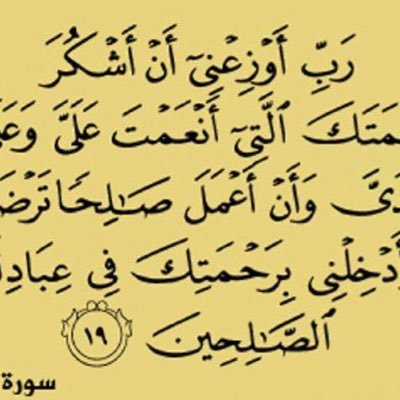 رَبِّ أَوْزِعْنِىٓ أَنْ أَشْكُرَ
ـمَتَكَ ٱلَّتِىٓ أَنْعَمْتَ عَلَىَّ وَعَلَ
دَىَّ وَأَنْ أَعْمَلَ صَـٰلِحًا تَرْضَ
أَدْخِلْنِى بِرَحْمَتِكَ فِى عِبَادِ
ٱلصَّـٰلِحِينَ ١٩
سورة